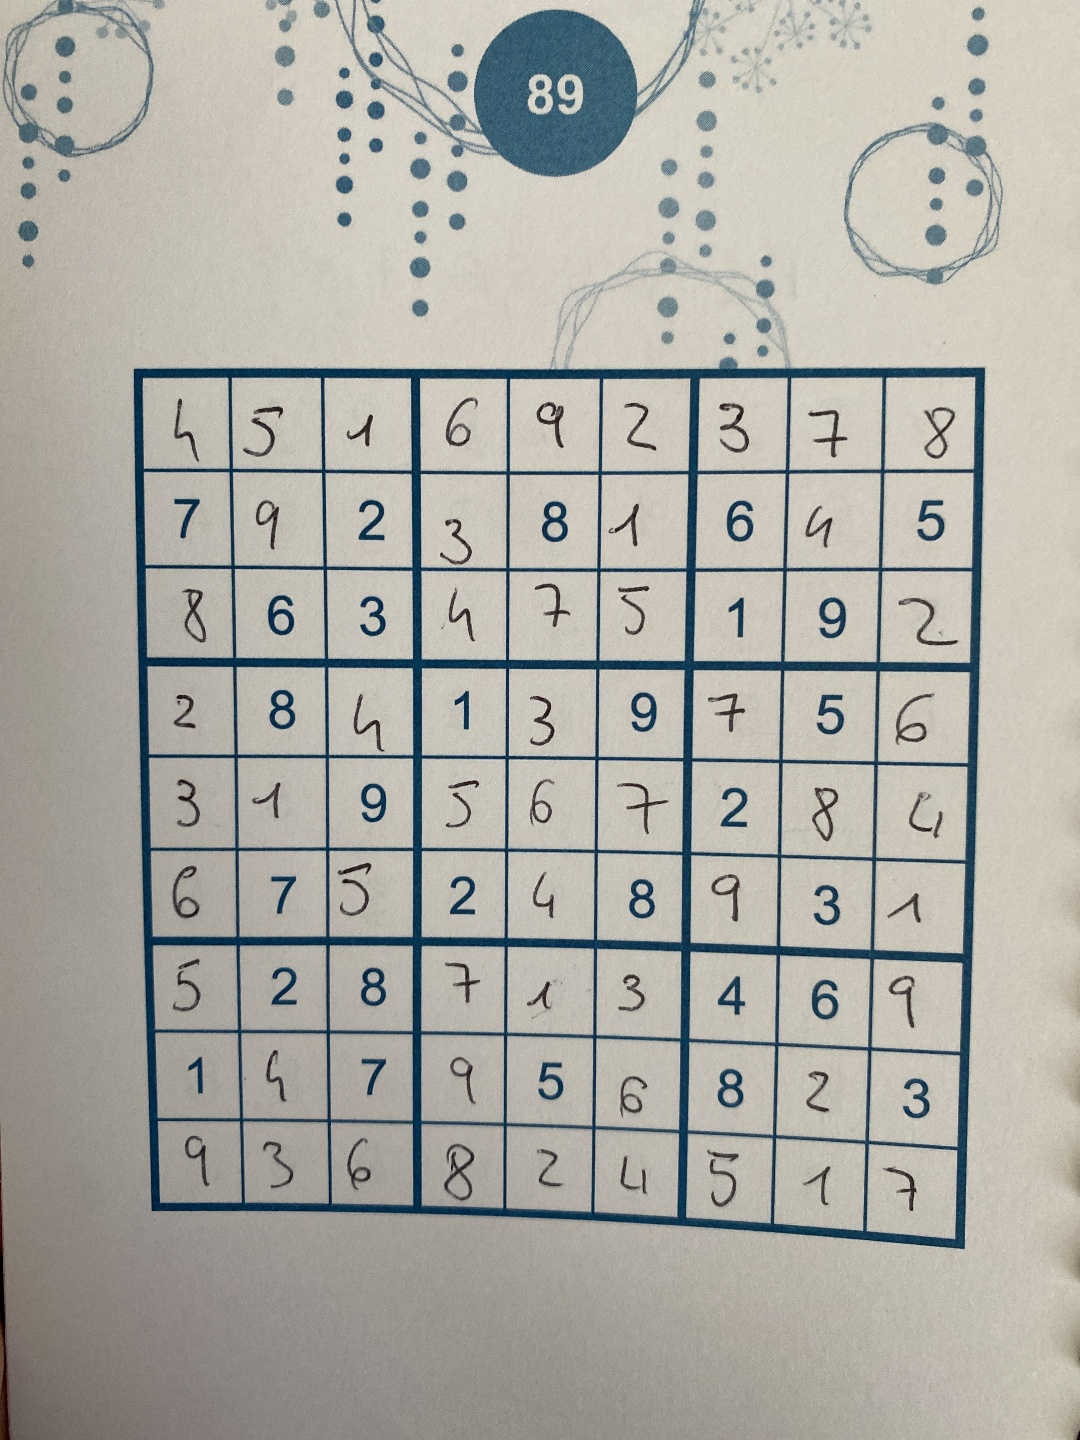 89
4 5 1 6 9 2 3 7 8
7 9 2 3 8 1 6 4 5
8 6 3 4 7 5 1 9 2
2 8 4 1 3 9 7 5 6
3 1 9 5 6 7 2 8 4
6 7 5 2 4 8 9 3 1
5 2 8 7 1 3 4 6 9
1 4 7 9 5 6 8 2 3
9 3 6 8 2 4 5 1 7